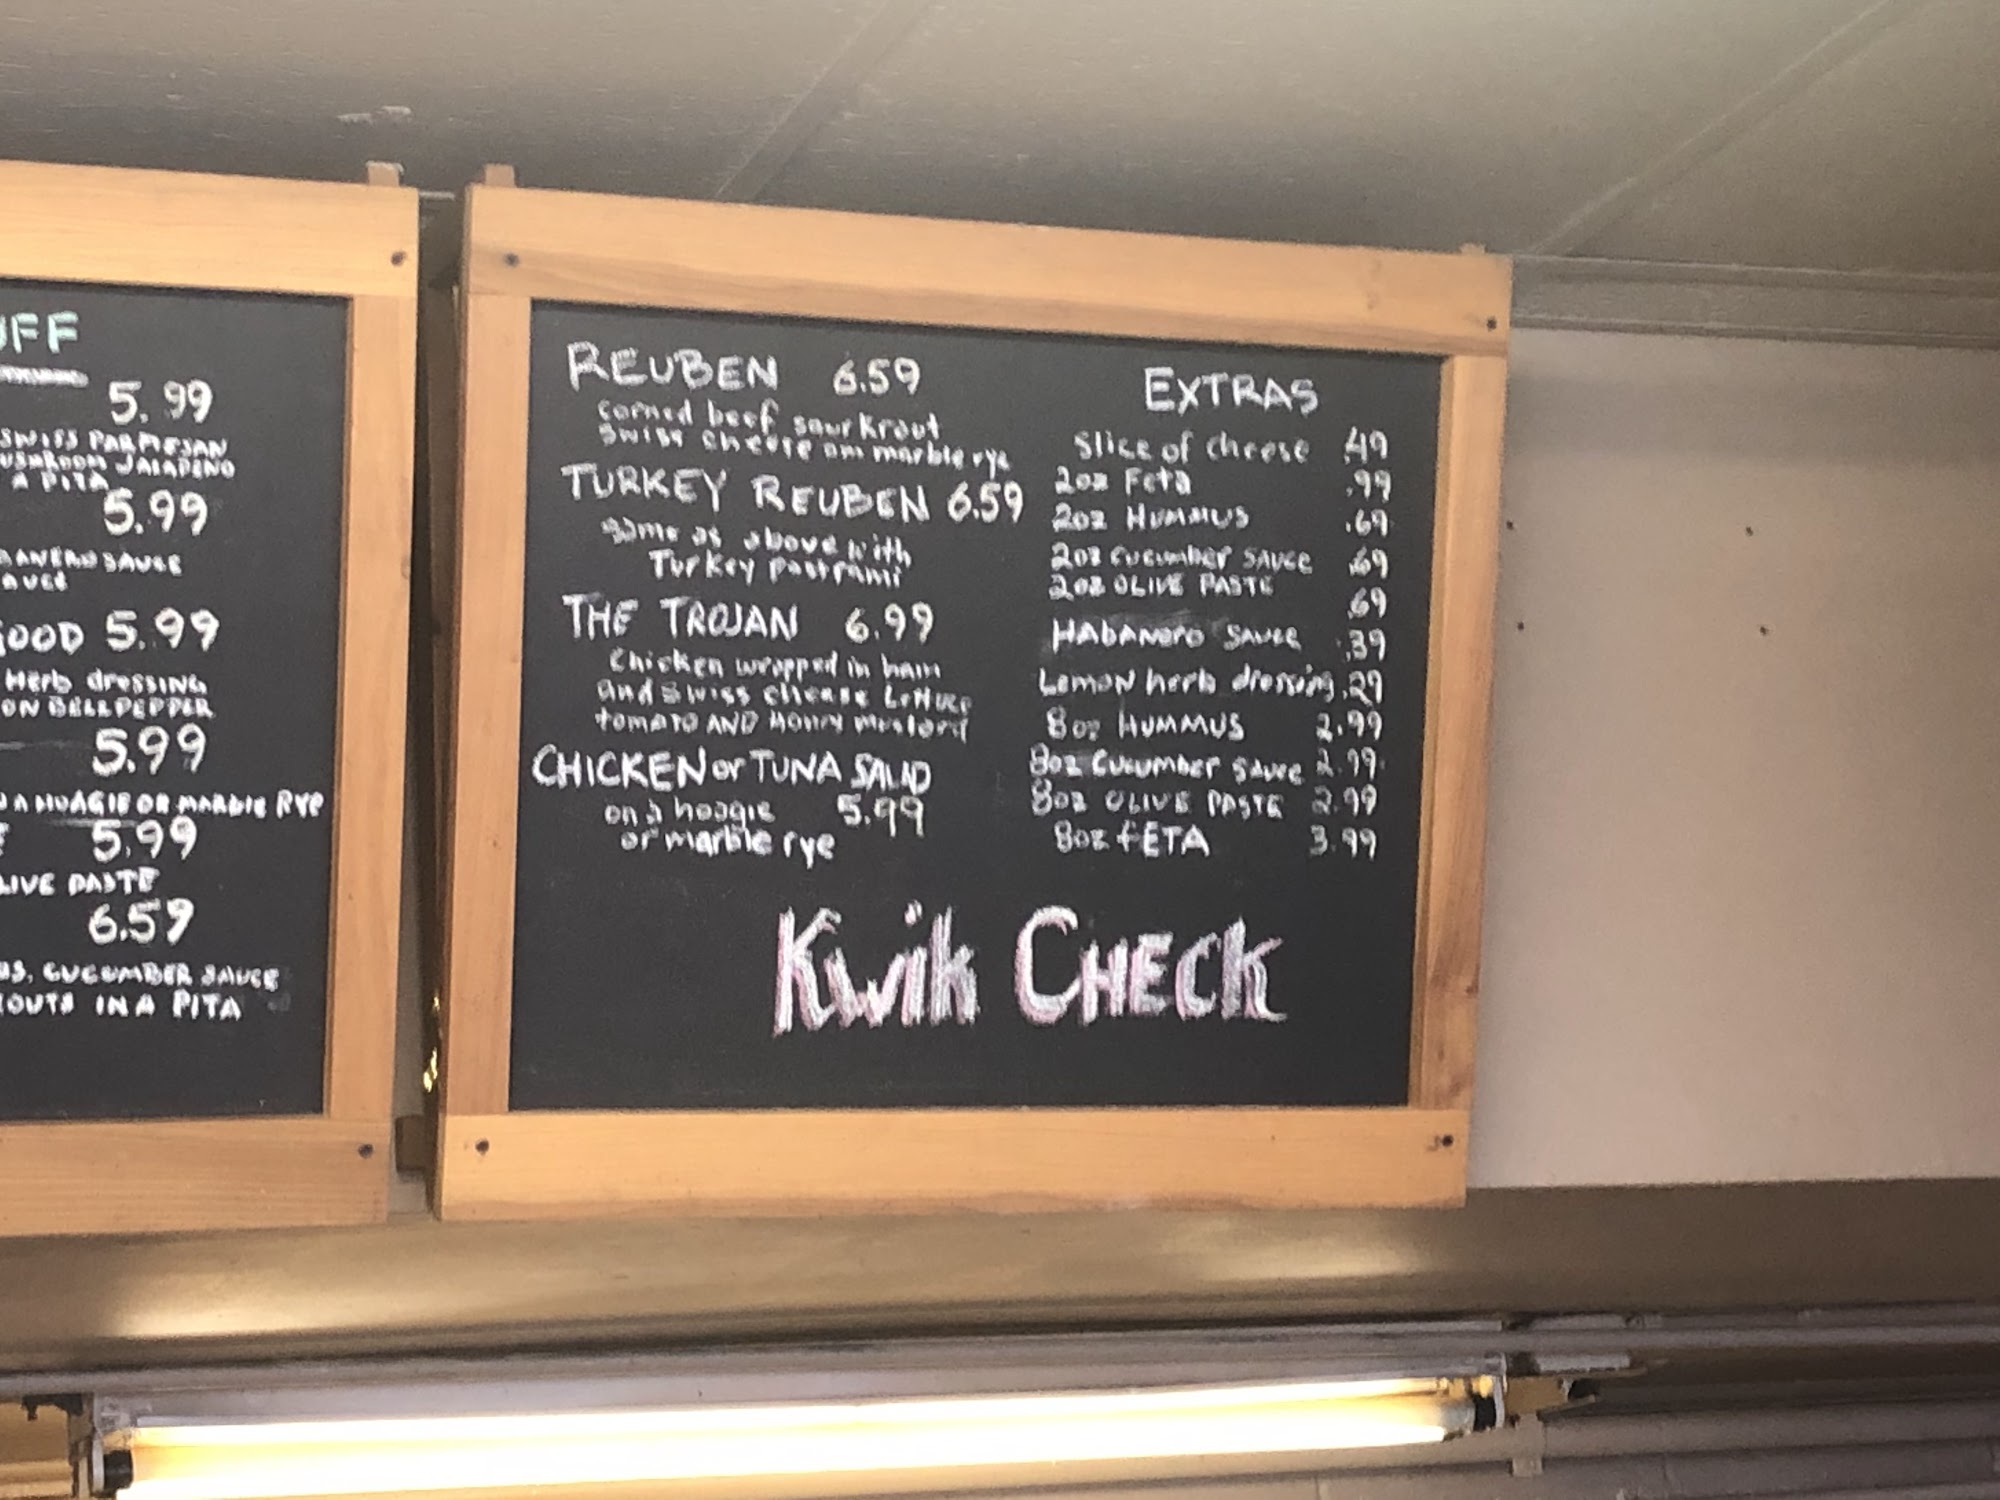 UFF
5.99
SWISS PARMESAN
USHROOM JALAPENO
A PITA
5.99
BANERO SAUCE
AUCE
GOOD 5.99
Herb dressing
ON BELL PEPPER
5.99
A HOAGIE OR MARBLE RYE
E 5.99
LIVE PASTE
6.59
US, CUCUMBER SAUCE
OUTS IN A PITA
REUBEN 6.59
corned beef sour krout
swiss cheese on marble rye
TURKEY REUBEN 6.59
same as above with
Turkey pastrami
THE TROJAN 6.99
Chicken wrapped in ham
and swiss cheese Lettuce
tomato AND Honey mustard
CHICKEN or TUNA SALAD
on a hoagie 5.99
or marble rye
EXTRAS
Slice of cheese .49
2oz Feta .99
2oz HUMMUS .69
2oz cucumber SAUCE .69
2oz OLIVE PASTE .69
HABANERO SAUCE .39
Lemon herb dressing .29
8oz HUMMUS 2.99
8oz Cucumber Sauce 2.99
8oz OLIVE PASTE 2.99
8oz fETA 3.99
Kwik CHECK